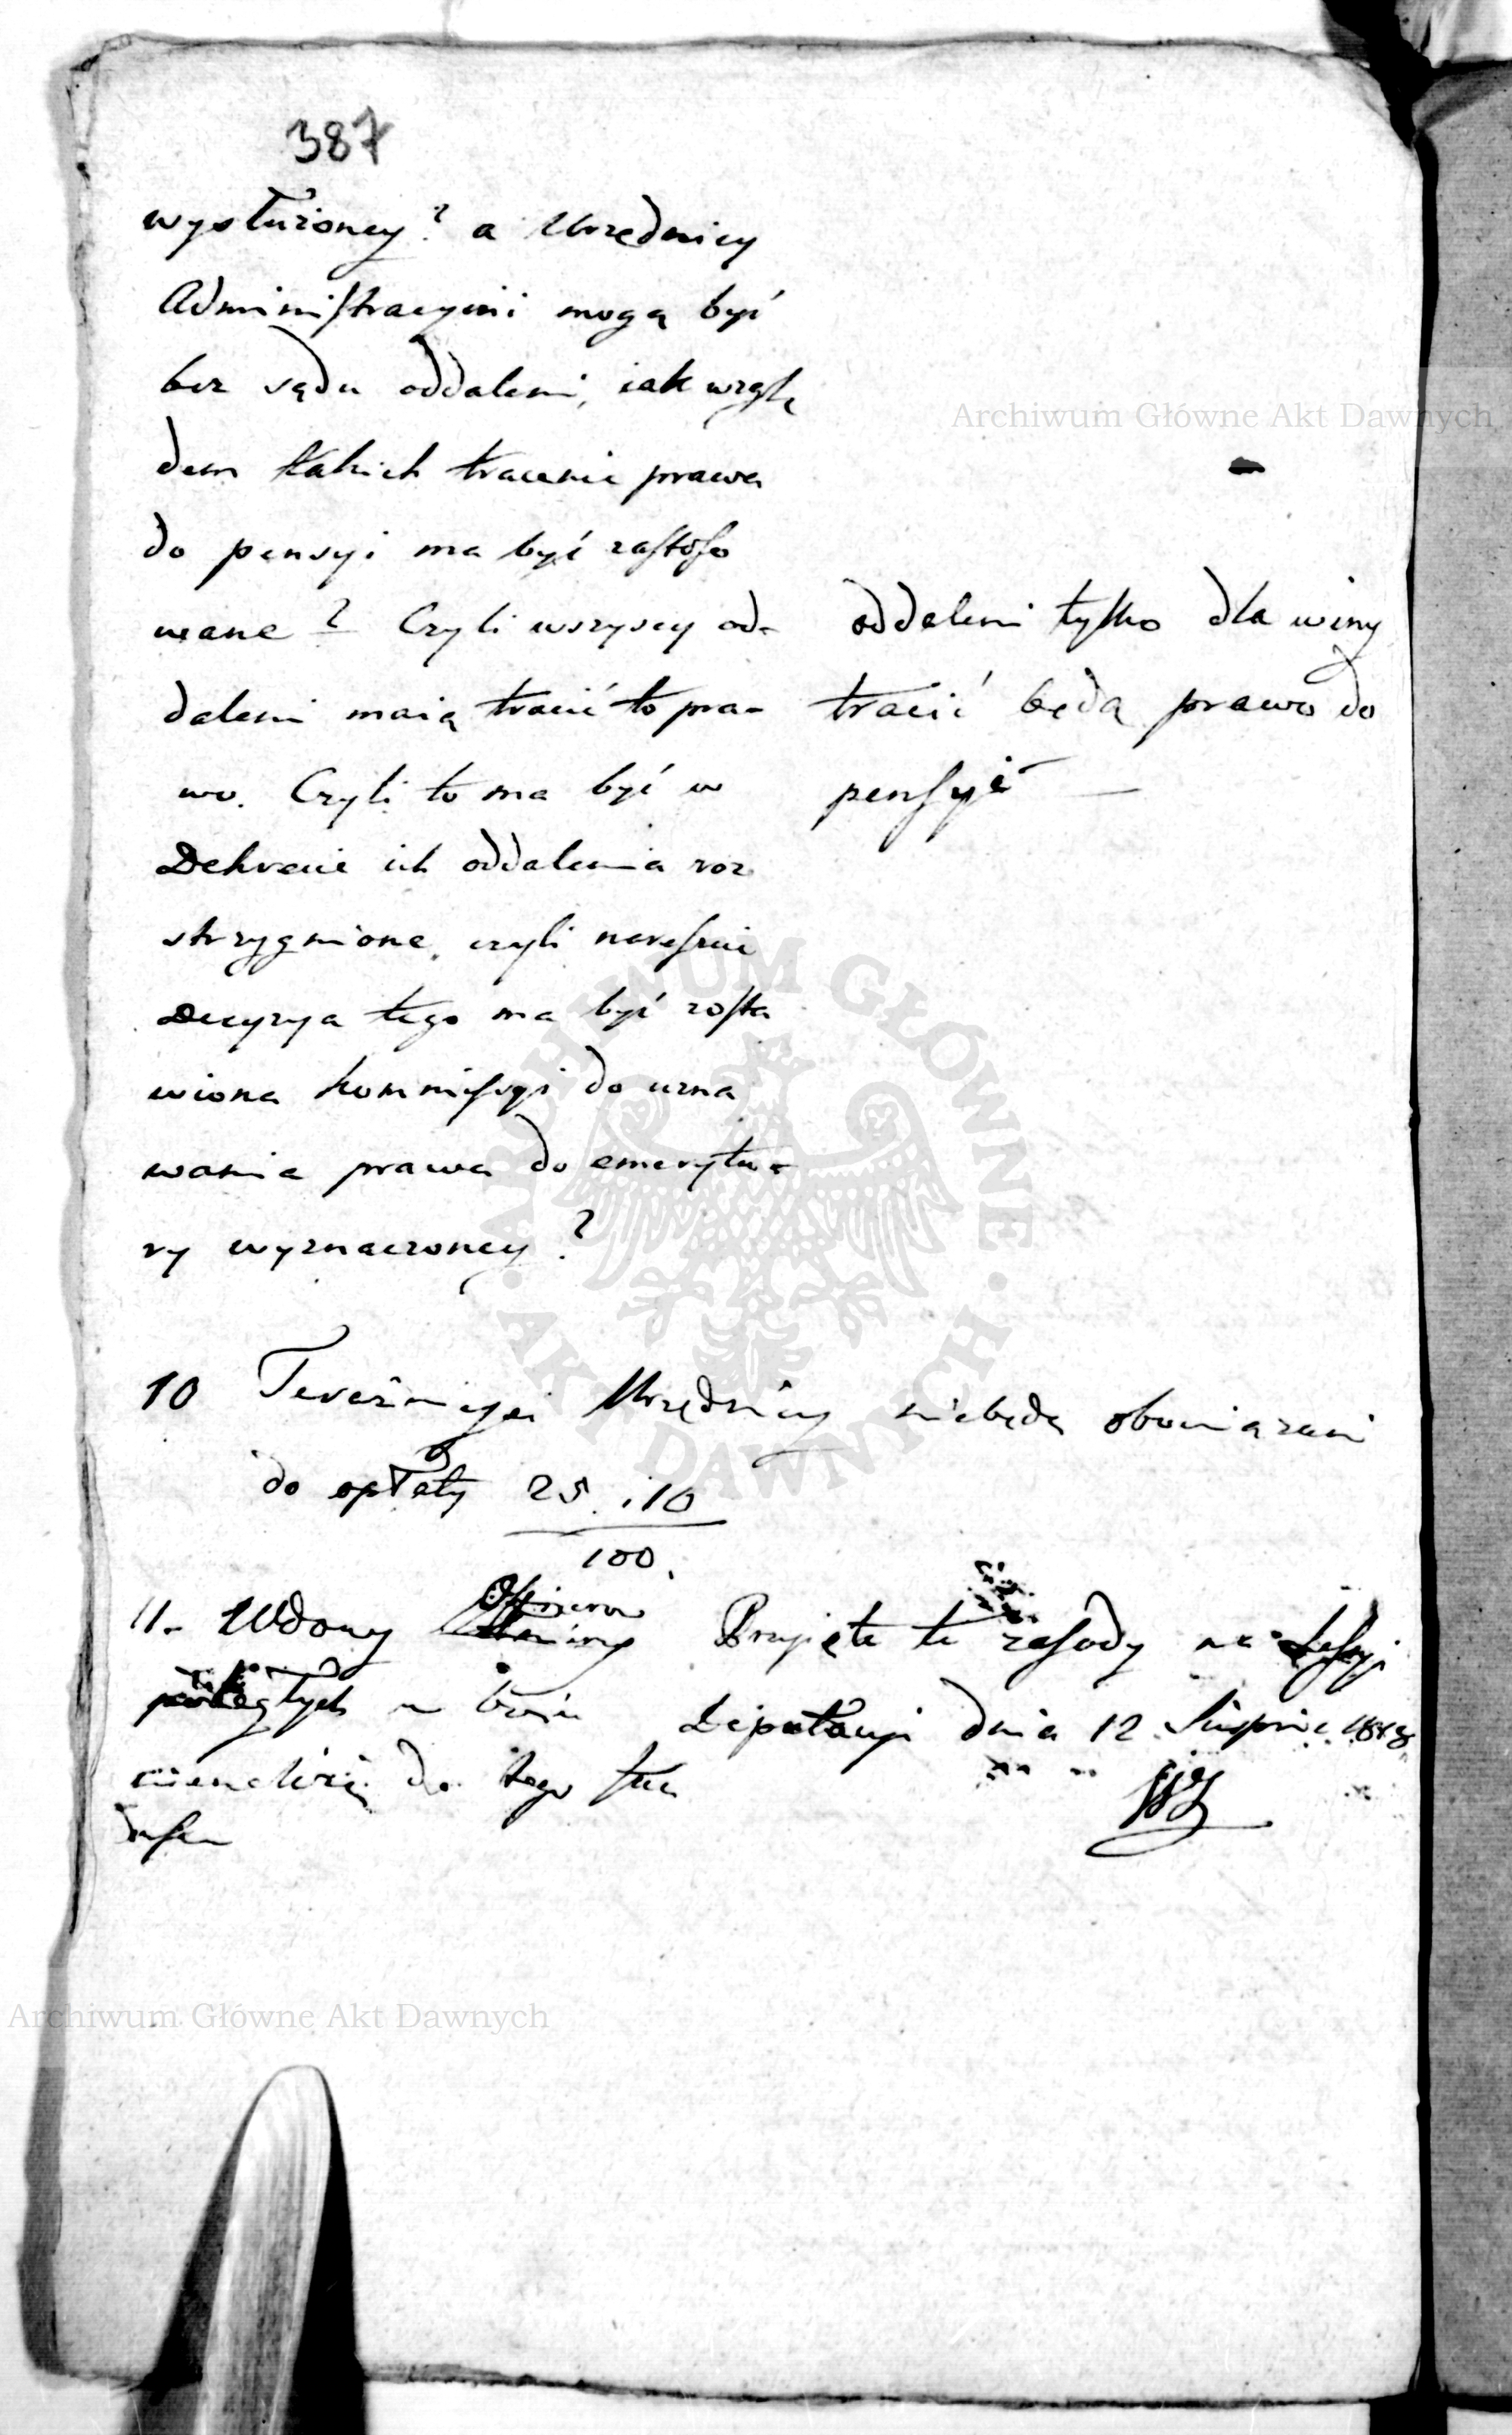 387
wysłużoney? a Urzędnicy
Administracyini mogą być
bez sądu oddaleni, iak wzglę
dem takich tracenie prawa
do pensyi ma być zastoso
wane? Czyli wszyscy od-
daleni maią tracić to pra-
wo. Czyli to ma być w
Dekrecie ich oddalenia roz
strzygnione, czyli nareście
Decyzya tego ma być zosta
wiona Kommissyi do uzna
wania prawa do emerytu-
ry wyznaczoney?
oddaleni tylko dla winy
tracić będą prawo do
pensyi
Archiwum Główne Akt Dawnych
10 Teraźnieysi Urzędnicy niebędą obowiązani
do opłaty 25. i 10
100.
11. Wdowy Officerów
poległych w boiu
nienależą do tego fun
duszu
Przyięte te zasady na Sessyi
Deputacyi dnia 12 Sierpnia 1818
ARCHIWUM GŁÓWNE AKT DAWNYCH
Archiwum Główne Akt Dawnych